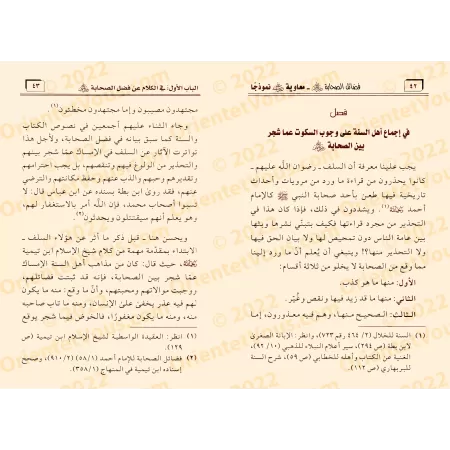 ٤٢
فضائل الصحابة ﷺ - معاوية ﷺ نموذجًا
فصل
في إجماع أهل السنة على وجوب السكوت عما شجر
بين الصحابة ﷺ
يجب علينا معرفة أن السلف ـ رضوان الله عليهم ـ
كانوا يحذرون من قراءة ما ورد من مرويات وأحداث
تاريخية فيها طعن بأحد صحابة النبي ﷺ كالإمام
أحمد (١)، ويشددون في ذلك، فإذا كان هذا في
التحذير من مجرد قراءتها فكيف بتبني نشرها وبثها
بين عامة الناس دون تمحيص لها ولا بيان الحق فيها
ولا التحذير منها؟! وينبغي أن يُعلم أن ما ورد إلينا
مما وقع من الصحابة لا يخلو من ثلاثة أقسام:
الأول: منها ما هو كذب.
الثاني: منها ما قد زيد فيها ونقص وغُيّر.
الثالث: الصحيح منها، وهم فيه معذورون، إما
(١) السنة للخلال (٢/ ٤٦٤ رقم ٧٢٣)، وانظر: الإبانة الصغرى
لابن بطة (ص ٢٩٤)، سير أعلام النبلاء للذهبي (١٠/ ٩٢)،
الغنية عن الكتاب وأهله للخطابي (ص ٥٩)، شرح السنة
للبربهاري (ص ١١٢).
الباب الأول: في الكلام عن فضل الصحابة
٤٣
مجتهدون مصيبون وإما مجتهدون مخطئون(١).
وجاء الثناء عليهم أجمعين في نصوص الكتاب
والسنة كما سبق بيانه في فضل الصحابة، ولأجل هذا
تواترت الآثار عن السلف في الإمساك عمّا شجر بينهم
والتحذير من الولوغ فيها وتنقصهم، بل يجب احترامهم
وتقديرهم وحبهم والذب عنهم وحفظ مكانتهم والترضي
عنهم، فقد روىٰ ابن بطة بسنده عن ابن عباس قال: لا
تسبوا أصحاب محمد، فإن الله أمر بالاستغفار لهم،
وهو يعلم أنهم سيقتتلون ويحدثون.(٢)
ويحسن هنا ـ قبل ذكر ما أثر عن هؤلاء السلف ـ
الابتداء بمقدمة مهمة من كلام شيخ الإسلام ابن تيمية
حيث قال: كان من مذاهب أهل السنة الإمساك
عمّا شجر بين الصحابة، فإنه قد ثبتت فضائلهم،
ووجبت موالاتهم ومحبتهم، وأنَّ ما وقع: منه ما يكون
لهم فيه عذر يخفىٰ علىٰ الإنسان، ومنه ما تاب صاحبه
منه، ومنه ما يكون مغفورًا، فالخوض فيما شجر يوقع
(١) انظر: العقيدة الواسطية لشيخ الإسلام ابن تيمية (ص
١٢٩).
(٢) فضائل الصحابة للإمام أحمد (١/٥٨) (٢/٩١٠)، وصحح
إسناده ابن تيمية في المنهاج (١/٣٥٨).